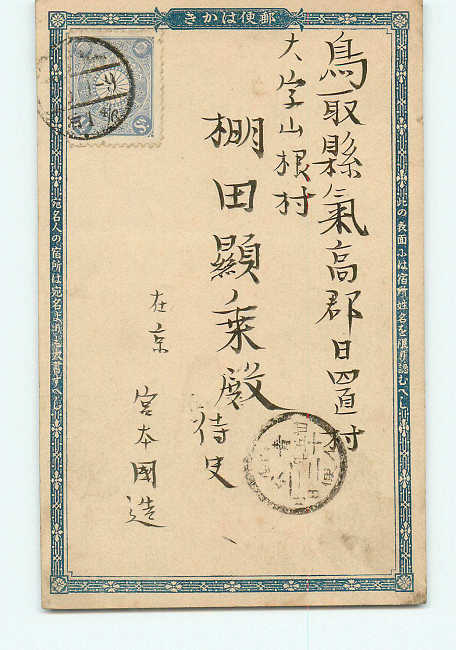 郵便はかき
此の表面には宿所姓名を限り認むへし
鳥取縣氣高郡日置村
大字山根村
棚田顯乗殿
侍史
在京
宮本國造
宛名人の宿所は宛名より